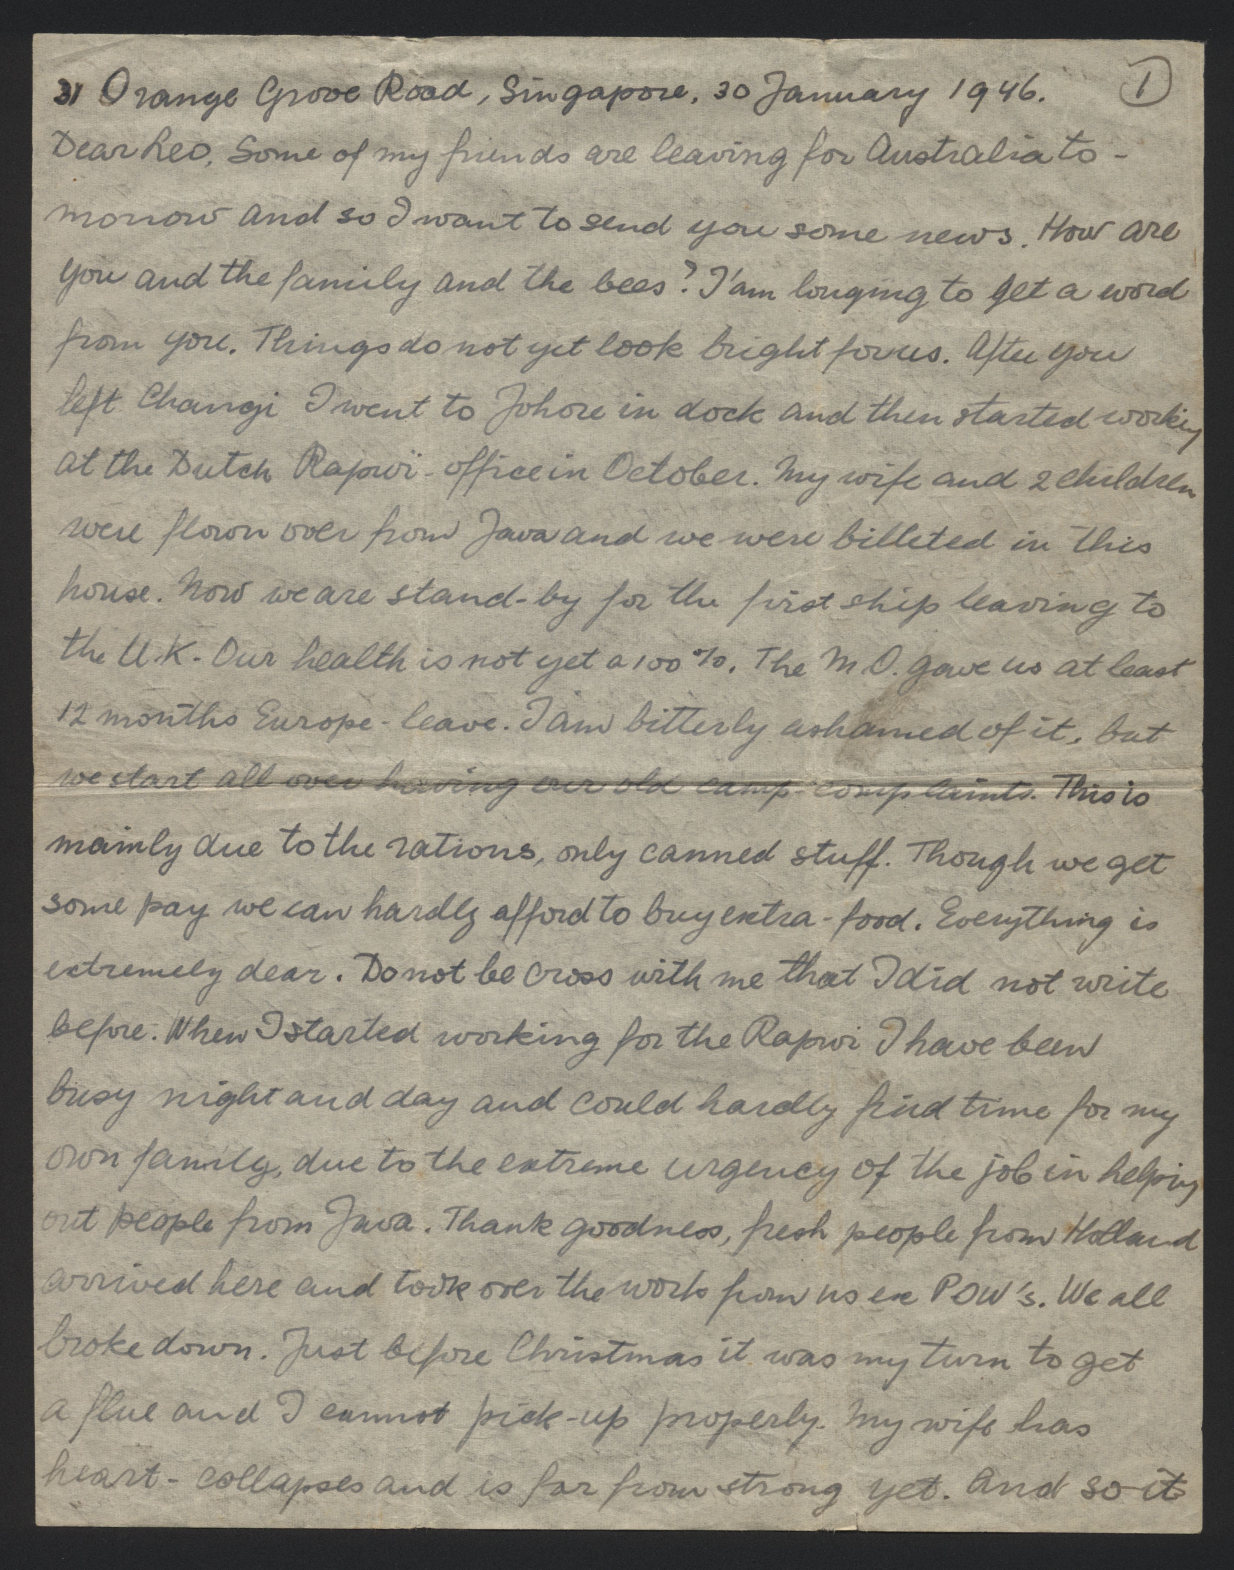 31 Orange Grove Road, Singapore, 30 January 1946. 1
Dear Leo, Some of my friends are leaving for Australia to-
morrow and so I want to send you some news. How are
you and the family and the bees? I'am longing to get a word
from you. Things do not yet look bright for us. After you
left Changi I went to Johore in dock and then started working
at the Dutch Rapwi-office in October. My wife and 2 children
were flown over from Java and we were billeted in this
house. Now we are stand-by for the first ship leaving to
the U.K. Our health is not yet a 100%. The M.O. gave us at least
12 months Europe-leave. I am bitterly ashamed of it, but
we start all over having our old camp-complaints. This is
mainly due to the rations, only canned stuff. Though we get
some pay we can hardly afford to buy extra-food. Everything is
extremely dear. Do not be cross with me that I did not write
before. When I started working for the Rapwi I have been
busy night and day and could hardly find time for my
own family, due to the extreme urgency of the job in helping
out people from Java. Thank goodness, fresh people from Holland
arrived here and took over the work from us ex POW's. We all
broke down. Just before Christmas it was my turn to get
a flue and I cannot pick-up properly. My wife has
heart-collapses and is far from strong yet. And so it